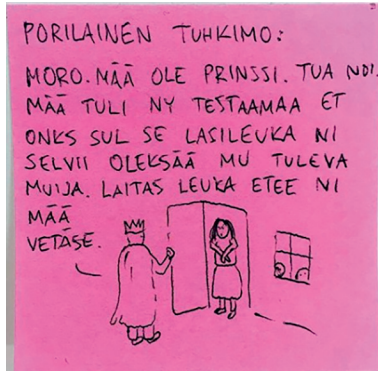 PORILAINEN TUHKIMO:
MORO. MÄÄ OLE PRINSSI. TUA NOI.
MÄÄ TULI NY TESTAAMAA ET
ONKS SUL SE LASILEUKA NI
SELVII OLEKSÄÄ MU TULEVA
MUIJA. LAITAS LEUKA ETEE NI
MÄÄ
VETÄSE.